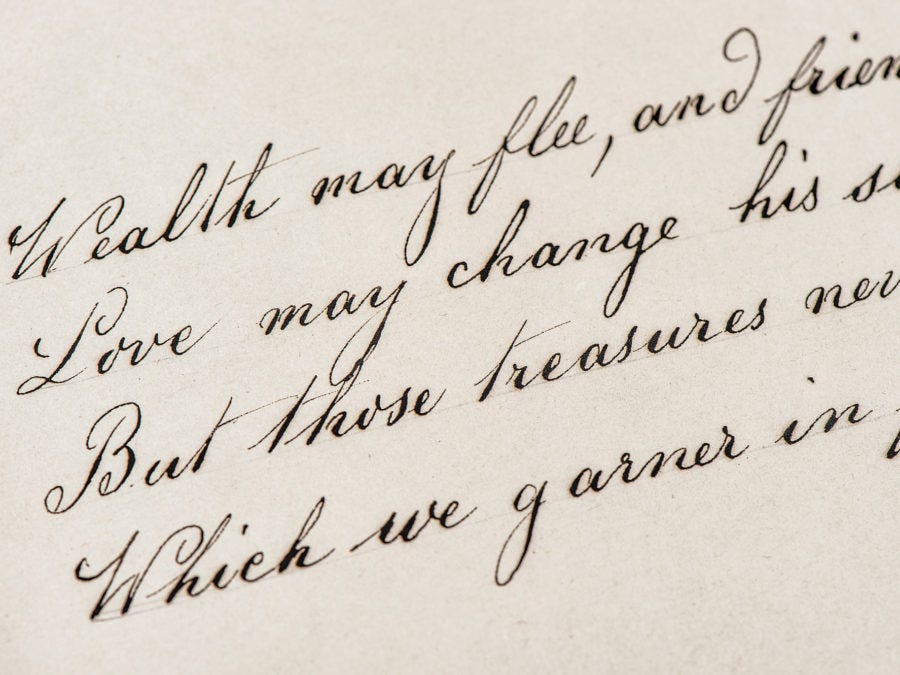 Wealth may flee, and frien
Love may change his s
But those treasures nev
Which we garner in